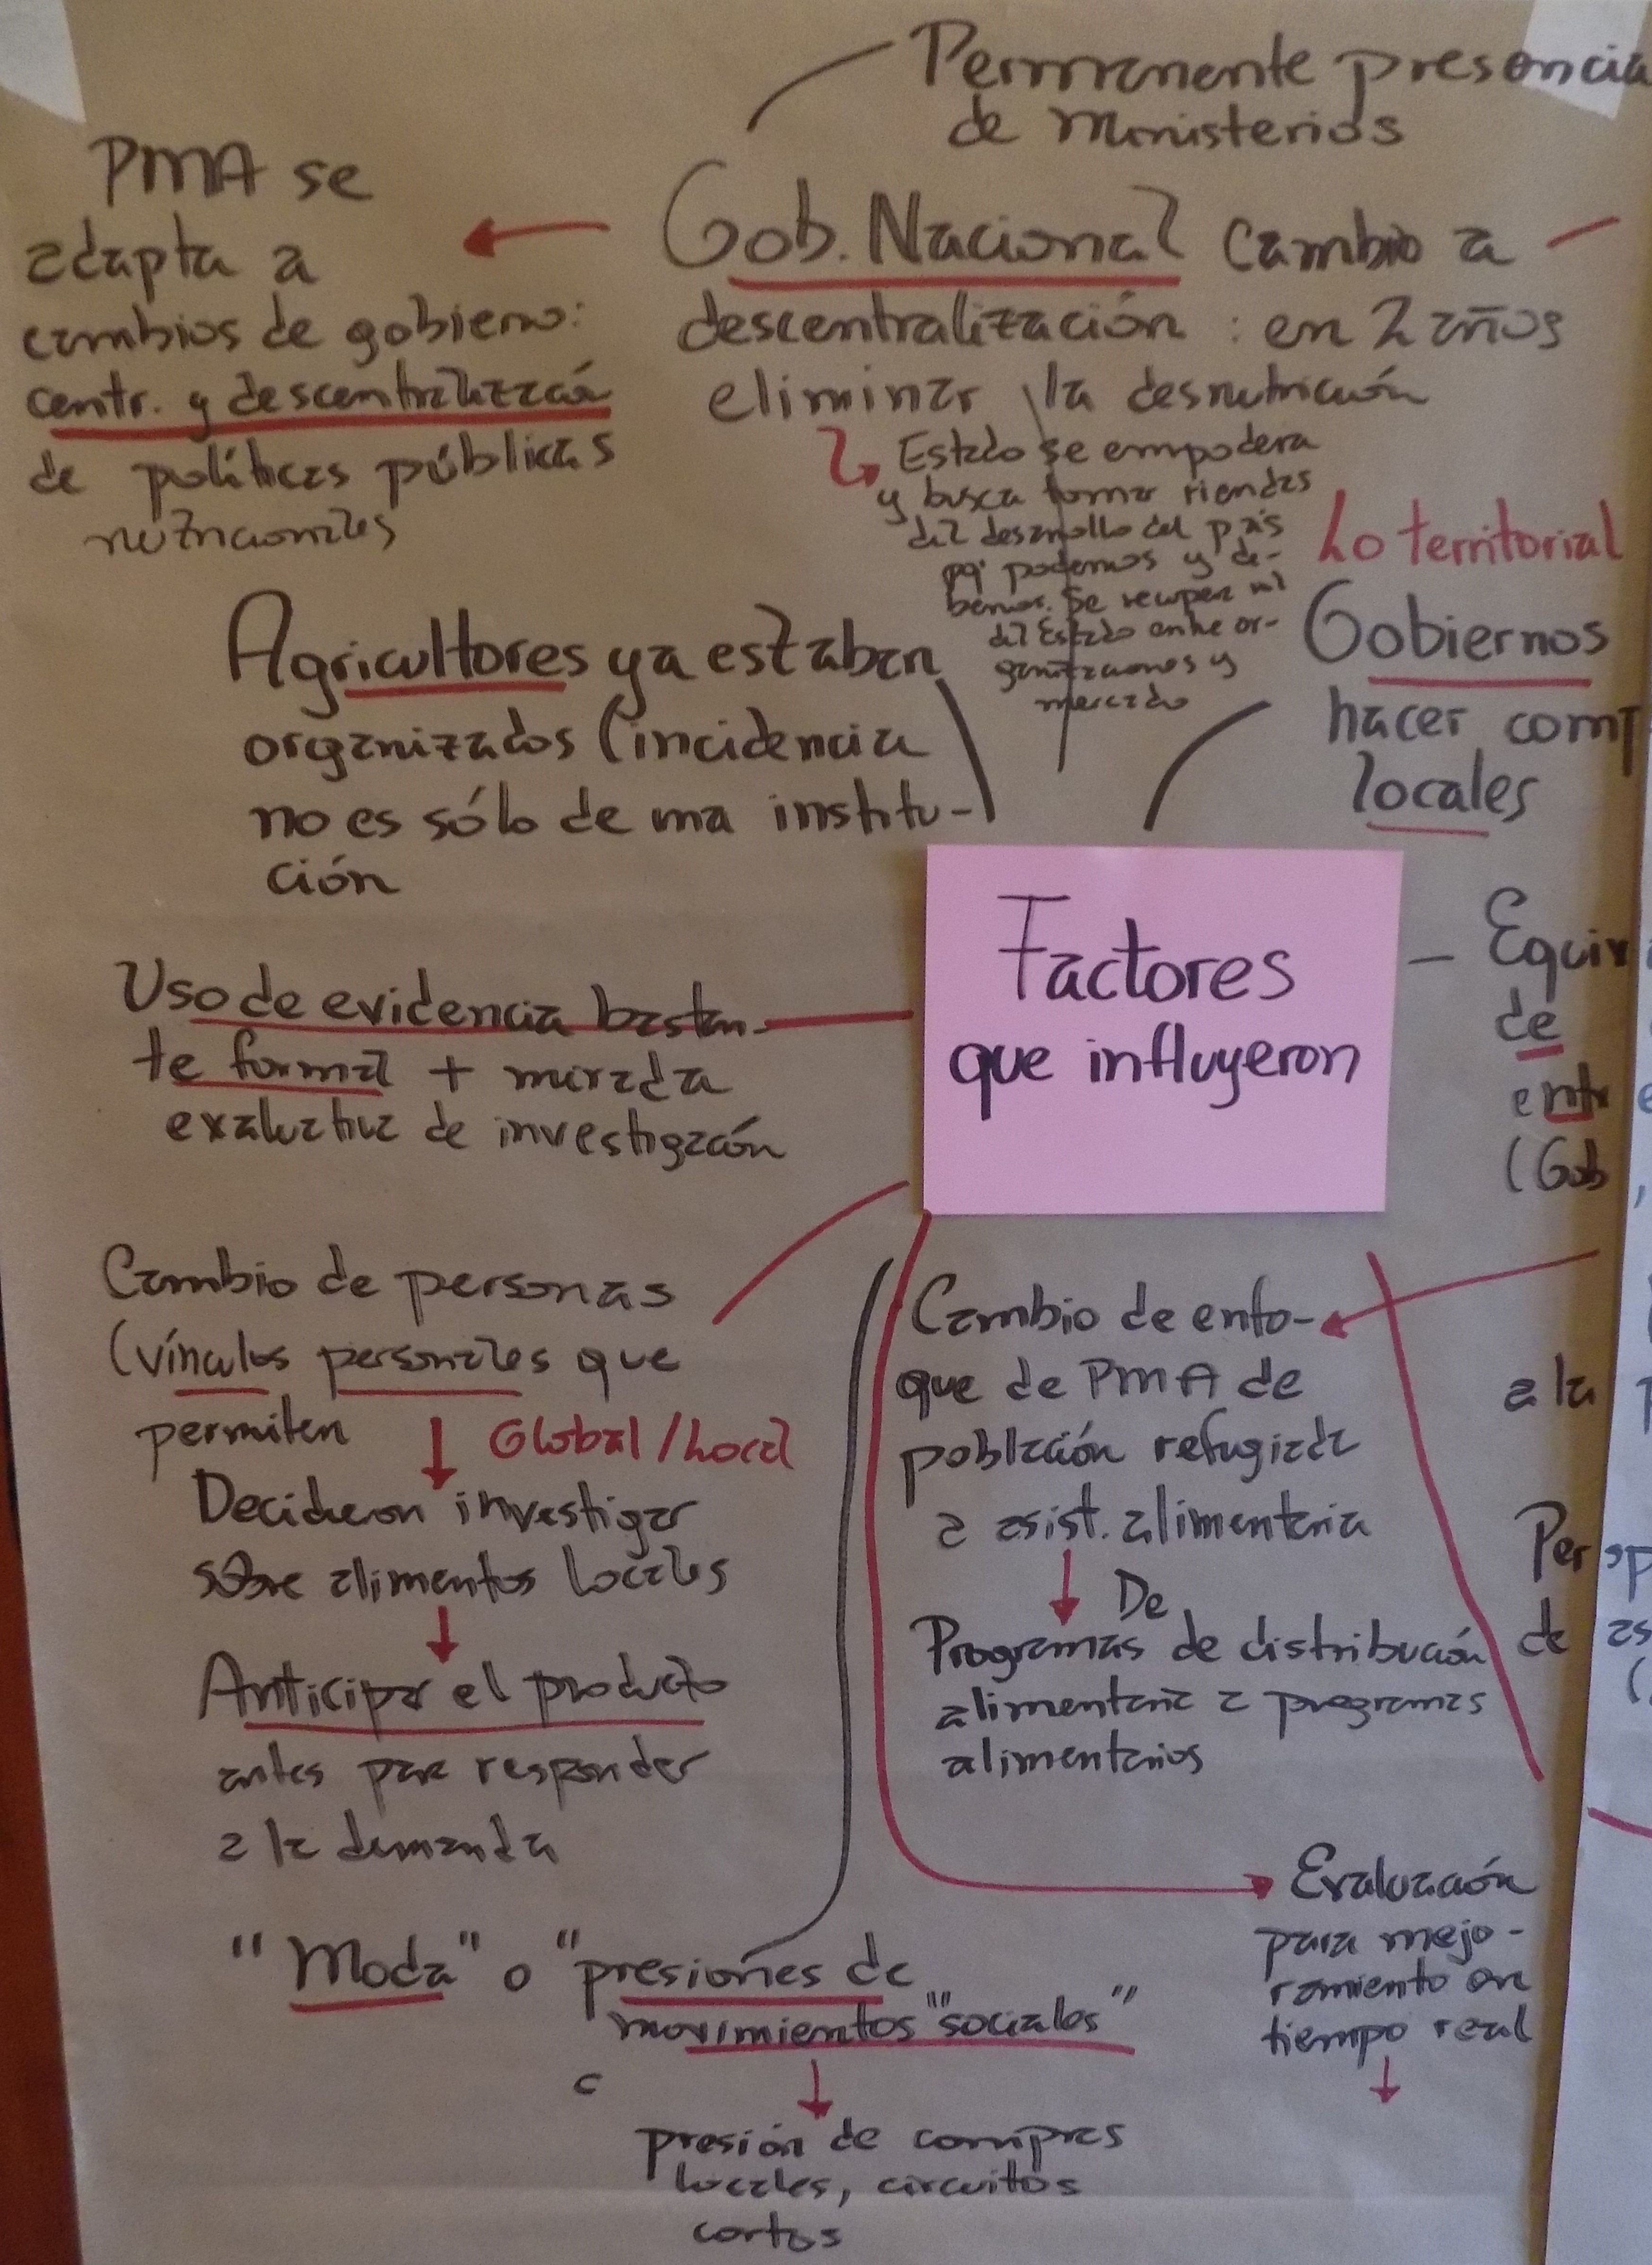 Permanente presencia
de ministerios
PMA se
adapta a
cambios de gobierno:
centr. y descentralización
de políticas públicas
nutricionales
Gob. Nacional Cambio a
descentralización : en 2 años
eliminar la desnutrición
Estado se empodera
y busca tomar riendas
del desarrollo del país
pq' podemos y de-
bemos. Se recupera rol
del Estado entre or-
ganizaciones y
mercado
Lo territorial
Gobiernos
hacer comp
locales
Agricultores ya estaban
organizados (incidencia
no es sólo de una institu-
ción
Factores
que influyeron
Uso de evidencia bastan-
te formal + mirada
evaluativa de investigación
Equi
de
entr
(Gob
Cambio de personas
(vínculos personales que
permiten
Global / Local
Decidieron investigar
sobre alimentos locales
Anticipar el producto
antes para responder
a la demanda
Cambio de enfo-
que de PMA de
población refugiada
a asist. alimentaria
De
Programas de distribución
alimentaria a programas
alimentarios
a la
Per
de
Evaluación
para mejo-
ramiento en
tiempo real
"Moda" o "presiones de
movimientos "sociales"
c
presión de compras
locales, circuitos
cortos